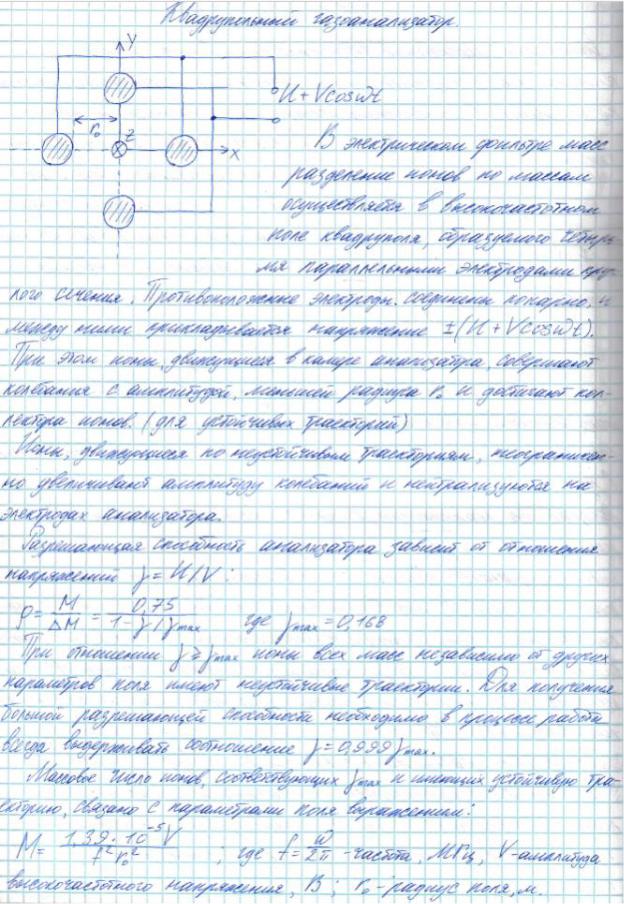 Квадрупольный газоанализатор.
Y
U + Vcosωt
r₀
Z
X
В электрическом фильтре масс
разделение ионов по массам
осуществляется в высокочастотном
поле квадруполя, образуемого четырь
мя параллельными электродами кру-
глого сечения. Противоположные электроды соединены попарно, и
между ними прикладывается напряжение ±(U + Vcosωt).
При этом ионы, движущиеся в камере анализатора, совершают
колебания с амплитудой, меньшей радиуса r₀ и достигают кол-
лектора ионов. (для устойчивых траекторий)
Ионы, движущиеся по неустойчивым траекториям, неограничен-
но увеличивают амплитуду колебаний и нейтрализуются на
электродах анализатора.
Разрешающая способность анализатора зависит от отношения
напряжений γ = U/V :
ρ = M/ΔM = 0,75/(1 - γ/γmax) где γmax = 0,168
При отношении γ ≥ γmax ионы всех масс независимо от других
параметров поля имеют неустойчивые траектории. Для получения
большой разрешающей способности необходимо в процессе работы
всегда выдерживать соотношение γ = 0,999 γmax.
Массовое число ионов, соответствующих γmax и имеющих устойчивую тра-
екторию, связано с параметрами поля выражением:
M = 1,39 · 10⁻⁵ V/(f² r₀²) ; где f = ω/2π - частота, МГц, V - амплитуда
высокочастотного напряжения, В ; r₀ - радиус поля, м.